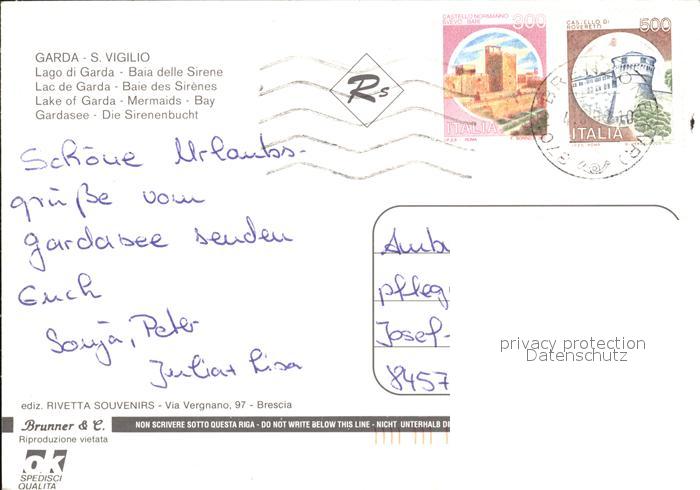 GARDA - S. VIGILIO
Lago di Garda - Baia delle Sirene
Lac de Garda - Baie des Sirènes
Lake of Garda - Mermaids - Bay
Gardasee - Die Sirenenbucht
Rs
CASTELLO NORMANNO
SVEVO BARI
300
ITALIA
CASTELLO DI
ROVERETO
500
ITALIA
Schöne Urlaubs-
grüße vom
Gardasee senden
Euch
Sonja, Peter
Julia + Lisa
Amb
pfleg
Josef-
8457
privacy protection
Datenschutz
ediz. RIVETTA SOUVENIRS - Via Vergnano, 97 - Brescia
Brunner & C.
NON SCRIVERE SOTTO QUESTA RIGA - DO NOT WRITE BELOW THIS LINE - NICHT UNTERHALB DI
Riproduzione vietata
ok
SPEDISCI
QUALITÀ